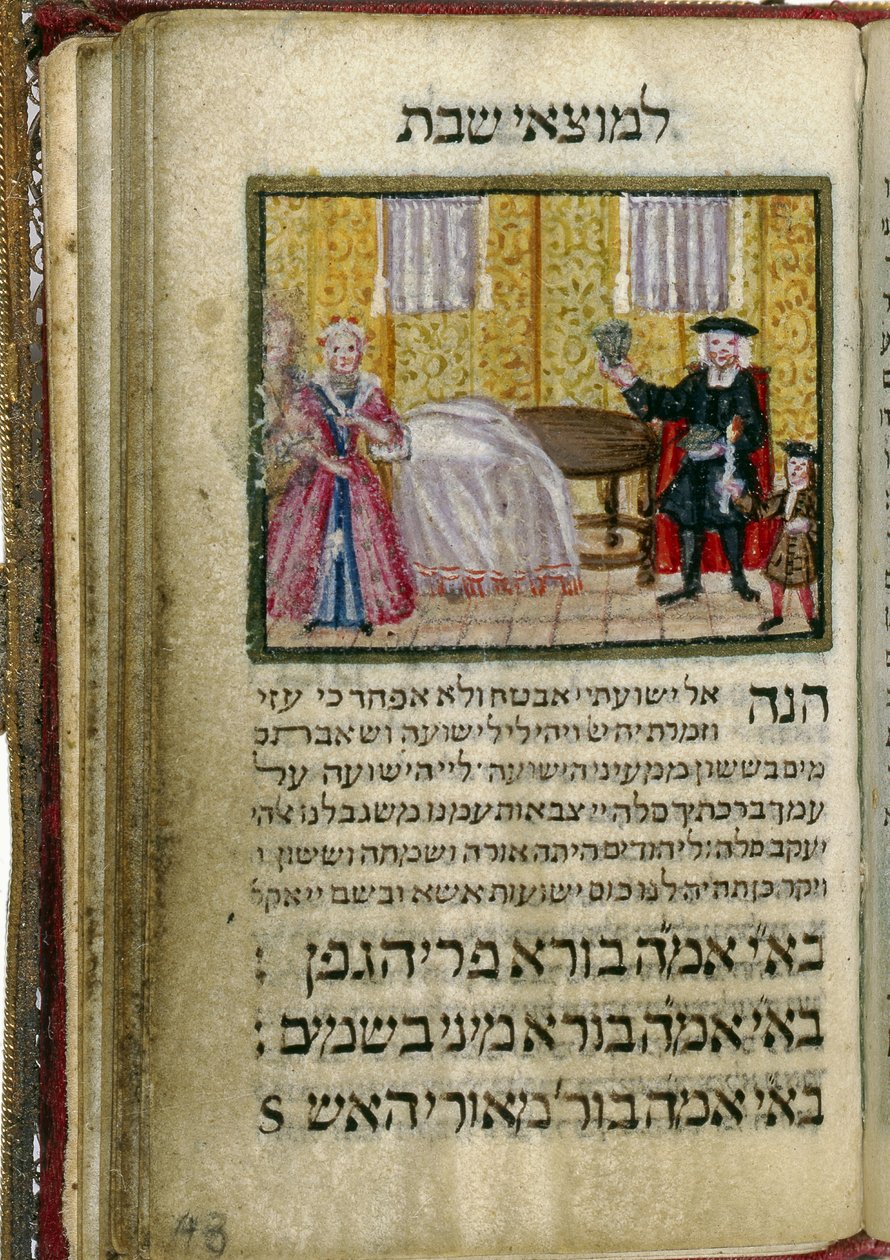 למוצאי שבת
הנה אל ישועתי אבטח ולא אפחד כי עזי
וזמרת יה יי ויהי לי לישועה ושאבתם
מים בששון ממעיני הישועה: ליי הישועה על
עמך ברכתיך סלה יי צבאות עמנו משגב לנו אלהי
יעקב סלה: ליהודים היתה אורה ושמחה וששון ו
ויקר כן תהיה לנו כוס ישועות אשא ובשם יי אקר
בא״י אמ״ה בורא פרי הגפן :
בא״י אמ״ה בורא מיני בשמים :
בא״י אמ״ה בור׳ מאורי האש S
48